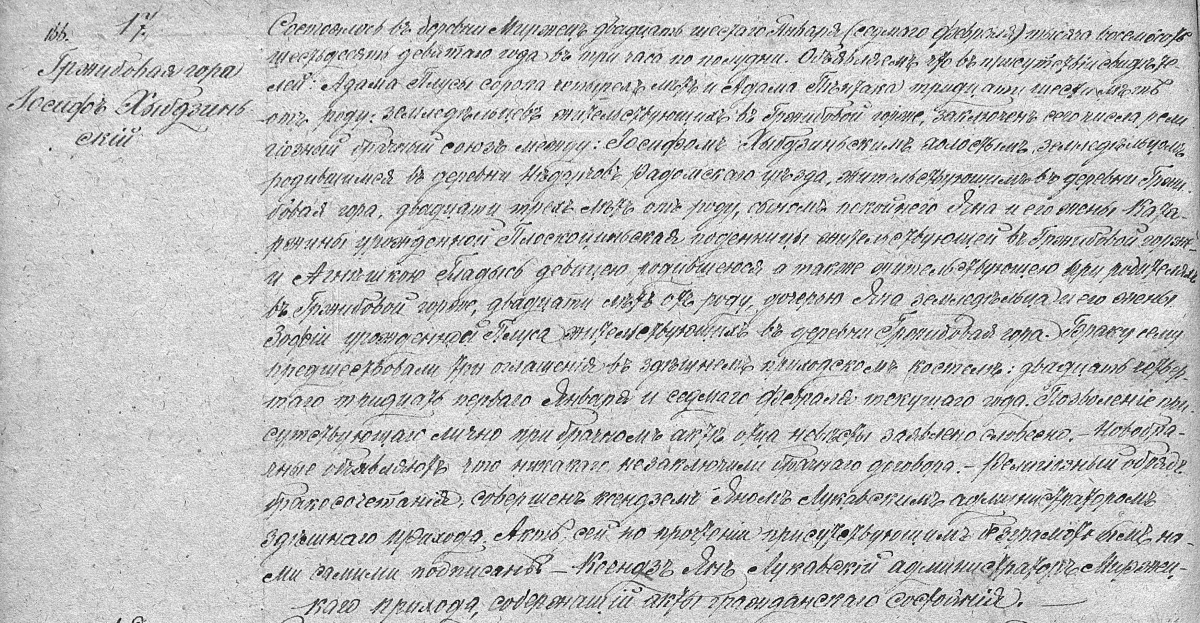 17.
Гржибовая гора
Іосифъ Хыбдзинь
скій
Состоялось въ деревни Миржецъ двадцать шестаго Января (седмаго февраля) тысяча восемьсотъ
шестьдесятъ девятаго года въ три часа по полудни. Объявляемъ что въ присутствіи свидѣте
лей: Адама Плусы сорока четырехъ лѣтъ и Адама тридцати шести лѣтъ
отъ роду, земледѣльцевъ жительствующихъ въ Гржибовой горже, заключенъ сего числа рели
гіозный брачный союзъ между: Іосифомъ Хыбдзиньскимъ холостымъ, земледѣльцомъ
родившимся въ деревни Радомскаго уѣзда, жительствующимъ въ деревни Гржи
бовая гора, двадцати трехъ лѣтъ отъ роду, сыномъ покойнего Яна и его жены Ката
ржины урожденной поденницы жительствующей въ Гржибовой горже
и Агнѣшкою Гладысь девицею родившеюся а также жительствующею при родителяхъ
въ Гржибовой горже, двадцати лѣтъ отъ роду, дочерью Яна земледѣльца и его жены
Зофіи урожденной Плуса жительствующихъ въ деревни Гржибовая гора. Браку сему
предшествовали три оглашенія въ здѣшнемъ приходскомъ костелѣ: двадцать четвер
таго тридцать перваго Января и седмаго февраля текущаго года. Позволеніе при
сутствующаго лично при брачномъ актѣ отца невѣсты заявлено словесно. – Новобра
чные объявляютъ что никакаго незаключили брачнаго договора. – Религіозный обрядъ
бракосочетанія, совершенъ ксендземъ Яномъ Лукавскимъ администраторомъ
здѣшнаго прихода. Актъ сей по прочтеніи присутствующимъ безграмотнымъ на
ми самими подписанъ – Ксендзъ Янъ Лукавскій администраторъ Миржец
каго прихода, содержащій акты гражданскаго состоянія. –